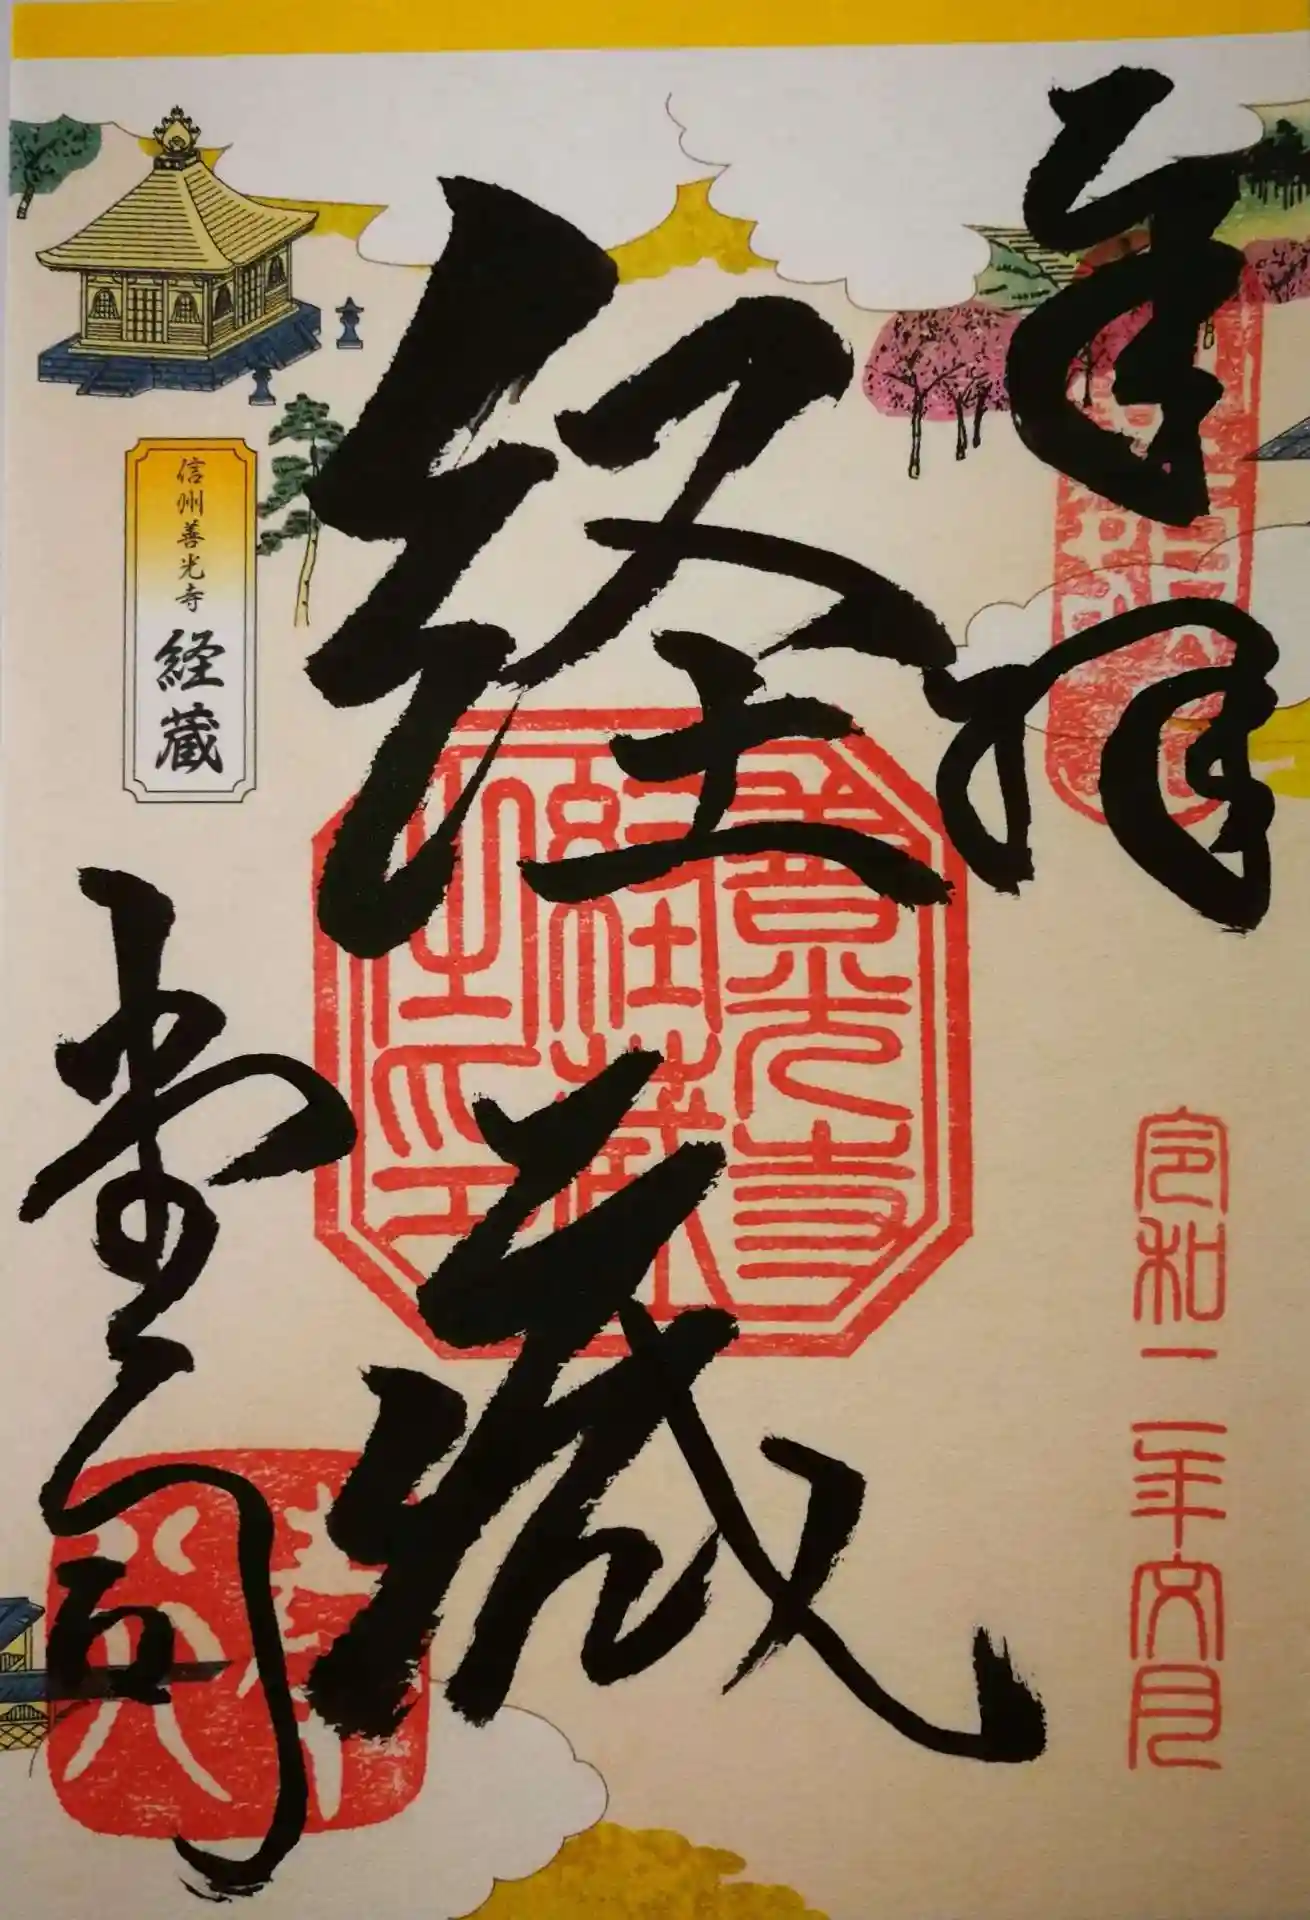 奉拝
令和二年六月
経蔵
善光寺
経蔵
信州善光寺
経蔵
堂司